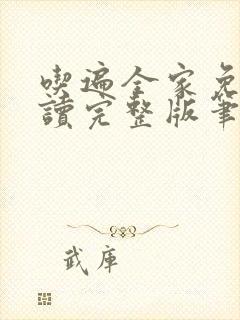 喫遍全家免
讀完整版筆
武庫